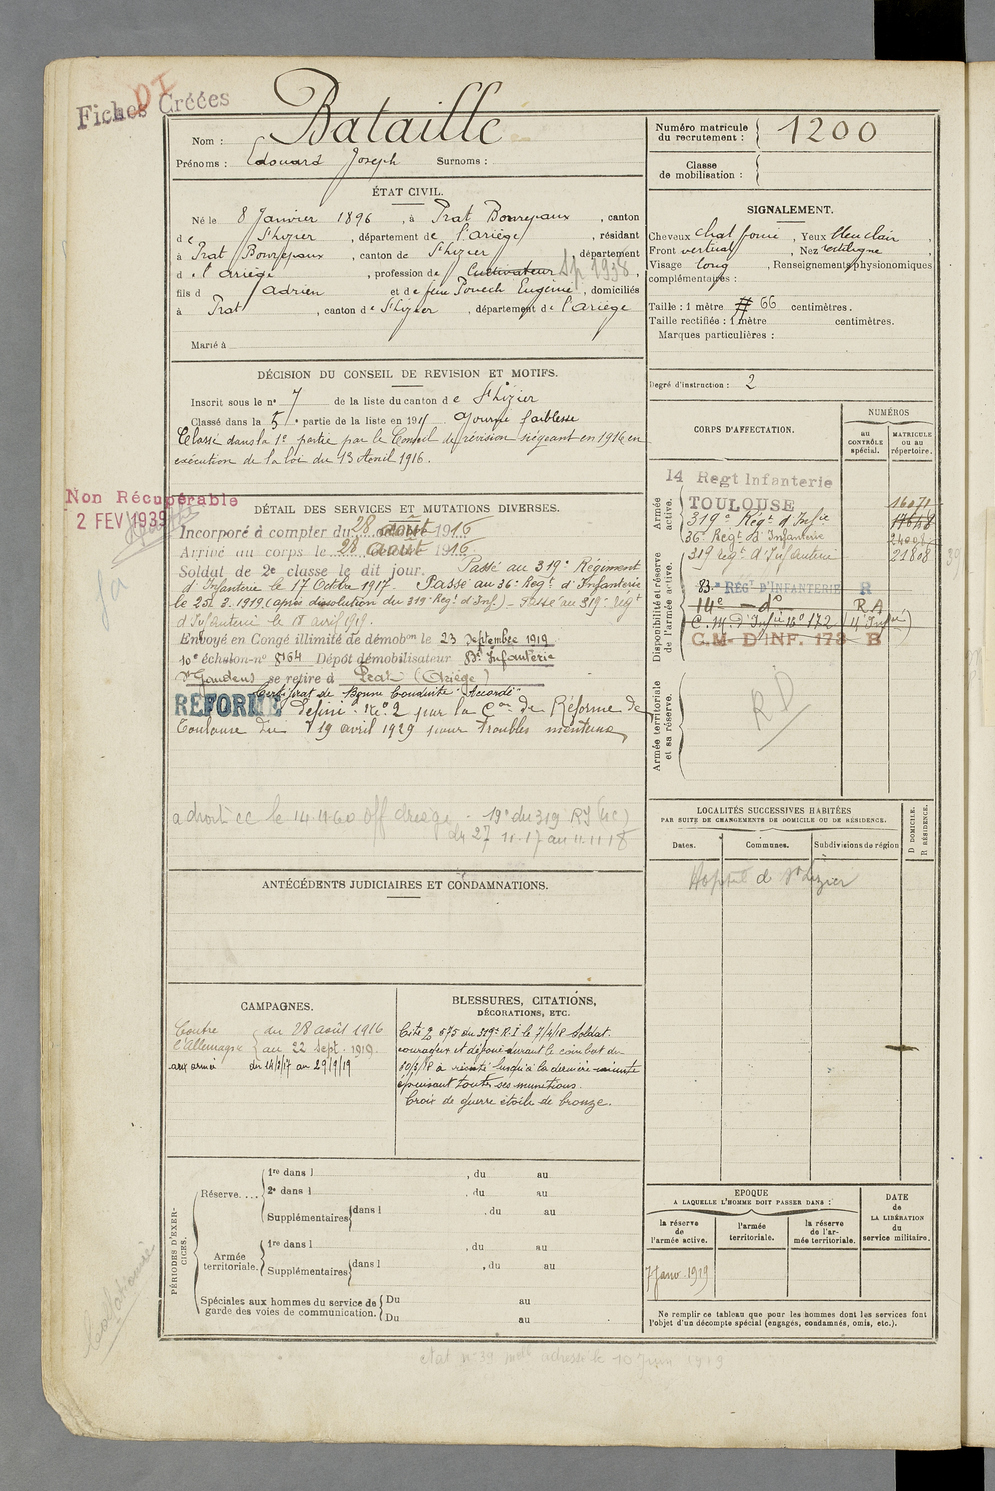 Fiches Créées
DI
Nom : Bataille
Prénoms : Edouard Joseph Surnoms :
Numéro matricule du recrutement : 1200
Classe de mobilisation :
ÉTAT CIVIL.
Né le 8 Janvier 1896, à Prat Bonrepaux, canton
de St Lizier, département de l'Ariège, résidant
à Prat Bonrepaux, canton de St Lizier, département
d e l'Ariège, profession de Cultivateur Sp 1938,
fils d Adrien et de feue Pouech Eugénie, domiciliés
à Prat, canton de St Lizier, département de l'Ariège
Marié à
SIGNALEMENT.
Cheveux chat foncé, Yeux bleu clair,
Front vertical, Nez rectiligne,
Visage long, Renseignements physionomiques
complémentaires :
Taille : 1 mètre 66 centimètres.
Taille rectifiée : 1 mètre centimètres.
Marques particulières :
Degré d'instruction : 2
DÉCISION DU CONSEIL DE REVISION ET MOTIFS.
Inscrit sous le n° 7 de la liste du canton de St Lizier
Classé dans la 5e partie de la liste en 191 Ajourné faiblesse
Classé dans la 1e partie par le Conseil de révision siégeant en 1916 en
exécution de la loi du 13 Avril 1916.
Non Récupérable
2 FEV 1939
DÉTAIL DES SERVICES ET MUTATIONS DIVERSES.
Incorporé à compter du 28 août 1916
Arrivé au corps le 28 août 1916
Soldat de 2e classe le dit jour. Passé au 319e Régiment
d'Infanterie le 17 Octbre 1917. Passé au 36e Regt d'Infanterie
le 25. 3. 1919 (après dissolution du 319e Regt d'Inf.) - Passé au 319e Régt
d'Infanterie le 18 avril 1919.
Envoyé en Congé illimité de démobon le 23 Septembre 1919
10e échelon-n° 8164 Dépôt démobilisateur 83e Infanterie
St Gaudens se retire à Prat (Ariège)
Certificat de Bonne Conduite "Accordé"
RÉFORMÉ Définif N° 2 par la Con de Réforme de
Toulouse du 19 avril 1929 pour troubles mentaux
a droit cc le 14-11-60 Off Ariège - 19e du 319 RI (4c)
du 27 11.17 au 11.11.18
CORPS D'AFFECTATION.
NUMÉROS
au CONTRÔLE spécial.
MATRICULE ou au répertoire.
Armée active.
14 Regt Infanterie
TOULOUSE
319e Régt d'Infie
36e Regt d'Infanterie
319 régt d'Infanterie 21808
Disponibilité et réserve de l'armée active.
83e REGT D'INFANTERIE R
14e - do RA
C. M. d'Infie n° 172
C.M. D'INF. 173 B
Armée territoriale et sa réserve.
RD
LOCALITÉS SUCCESSIVES HABITÉES
PAR SUITE DE CHANGEMENTS DE DOMICILE OU DE RÉSIDENCE.
D DOMICILE.
R RÉSIDENCE.
Dates. Communes. Subdivisions de région
Hopital de St Lizier
ANTÉCÉDENTS JUDICIAIRES ET CONDAMNATIONS.
CAMPAGNES.
Contre l'Allemagne du 28 août 1916
au 22 Sept. 1919.
aux armées
BLESSURES, CITATIONS,
DÉCORATIONS, ETC.
Cité O 575 du 319e R.I le 7/4/18 Soldat
courageux et dévoué durant le combat du
30/3/18 a résisté jusqu'à la dernière minute
épuisant toutes ses munitions.
Croix de guerre étoile de bronze.
PÉRIODES D'EXERCICES.
Réserve.... 1re dans l , du au
2e dans l , du au
Supplémentaires dans l , du au
Armée territoriale. 1re dans l , du au
Supplémentaires dans l , du au
Spéciales aux hommes du service de garde des voies de communication. Du au
Du au
EPOQUE
A LAQUELLE L'HOMME DOIT PASSER DANS :
la réserve de l'armée active.
l'armée territoriale.
la réserve de l'armée territoriale.
DATE de LA LIBÉRATION du service militaire.
7 Janv. 1919
Ne remplir ce tableau que pour les hommes dont les services font
l'objet d'un décompte spécial (engagés, condamnés, omis, etc.).
Collationné
état n° 39 adressé le 10 Juin 1919